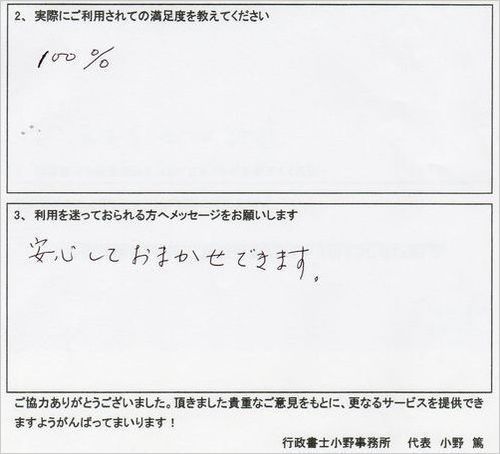 2、実際にご利用されての満足度を教えてください
100%
3、利用を迷っておられる方へメッセージをお願いします
安心しておまかせできます。
ご協力ありがとうございました。頂きました貴重なご意見をもとに、更なるサービスを提供でき
ますようがんばってまいります！
行政書士小野事務所　代表 小野 篤